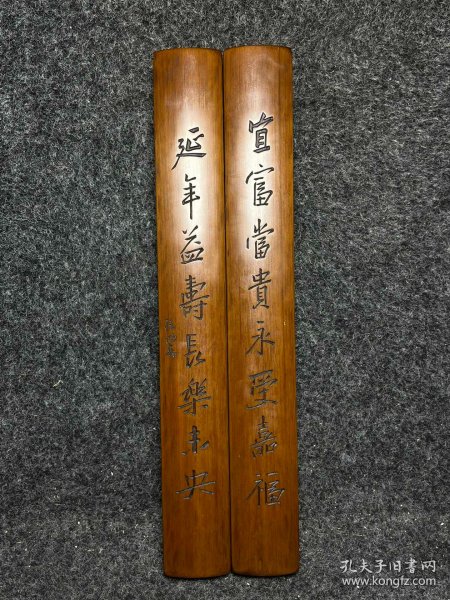 宜富當貴永受嘉福
延年益壽長樂未央
孔夫子旧书网
www.kongfz.com